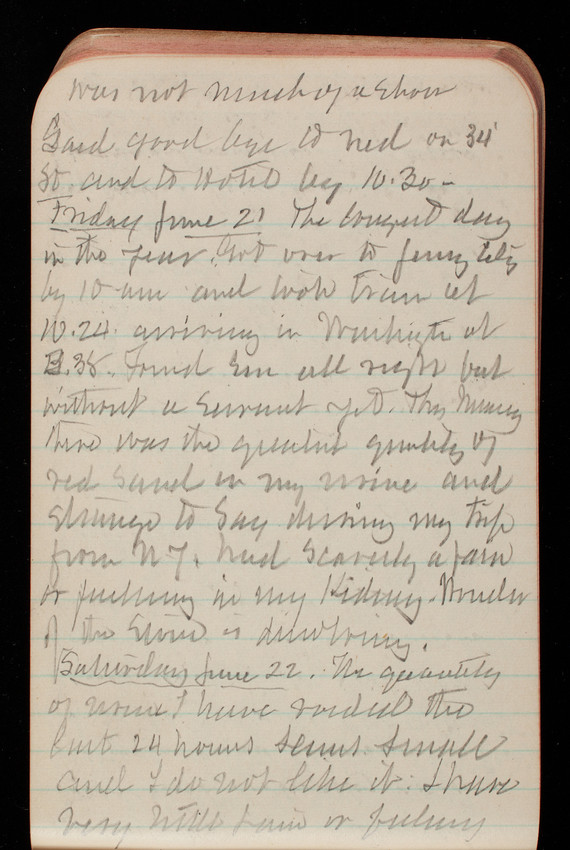 was not much of a show
Said good bye to Ned on 34
St. and to Hotel by 10.30 -
Friday June 21 The longest day
in the year. Got over to Jersey City
by 10 am and took train at
10.24. arriving in Washigtn at
3.35. Found Em all right but
without a servant yet. This Morning
there was the greatest quantity of
red sand in my urine and
strange to say during my trip
from N.Y. had scarcely a pain
or feeling in my Kidney. Wonder
if the stone is dissolving.
Saturday June 22. The quantity
of urine I have voided the
last 24 hours seems small
and I do not like it. I have
very little pain or feeling